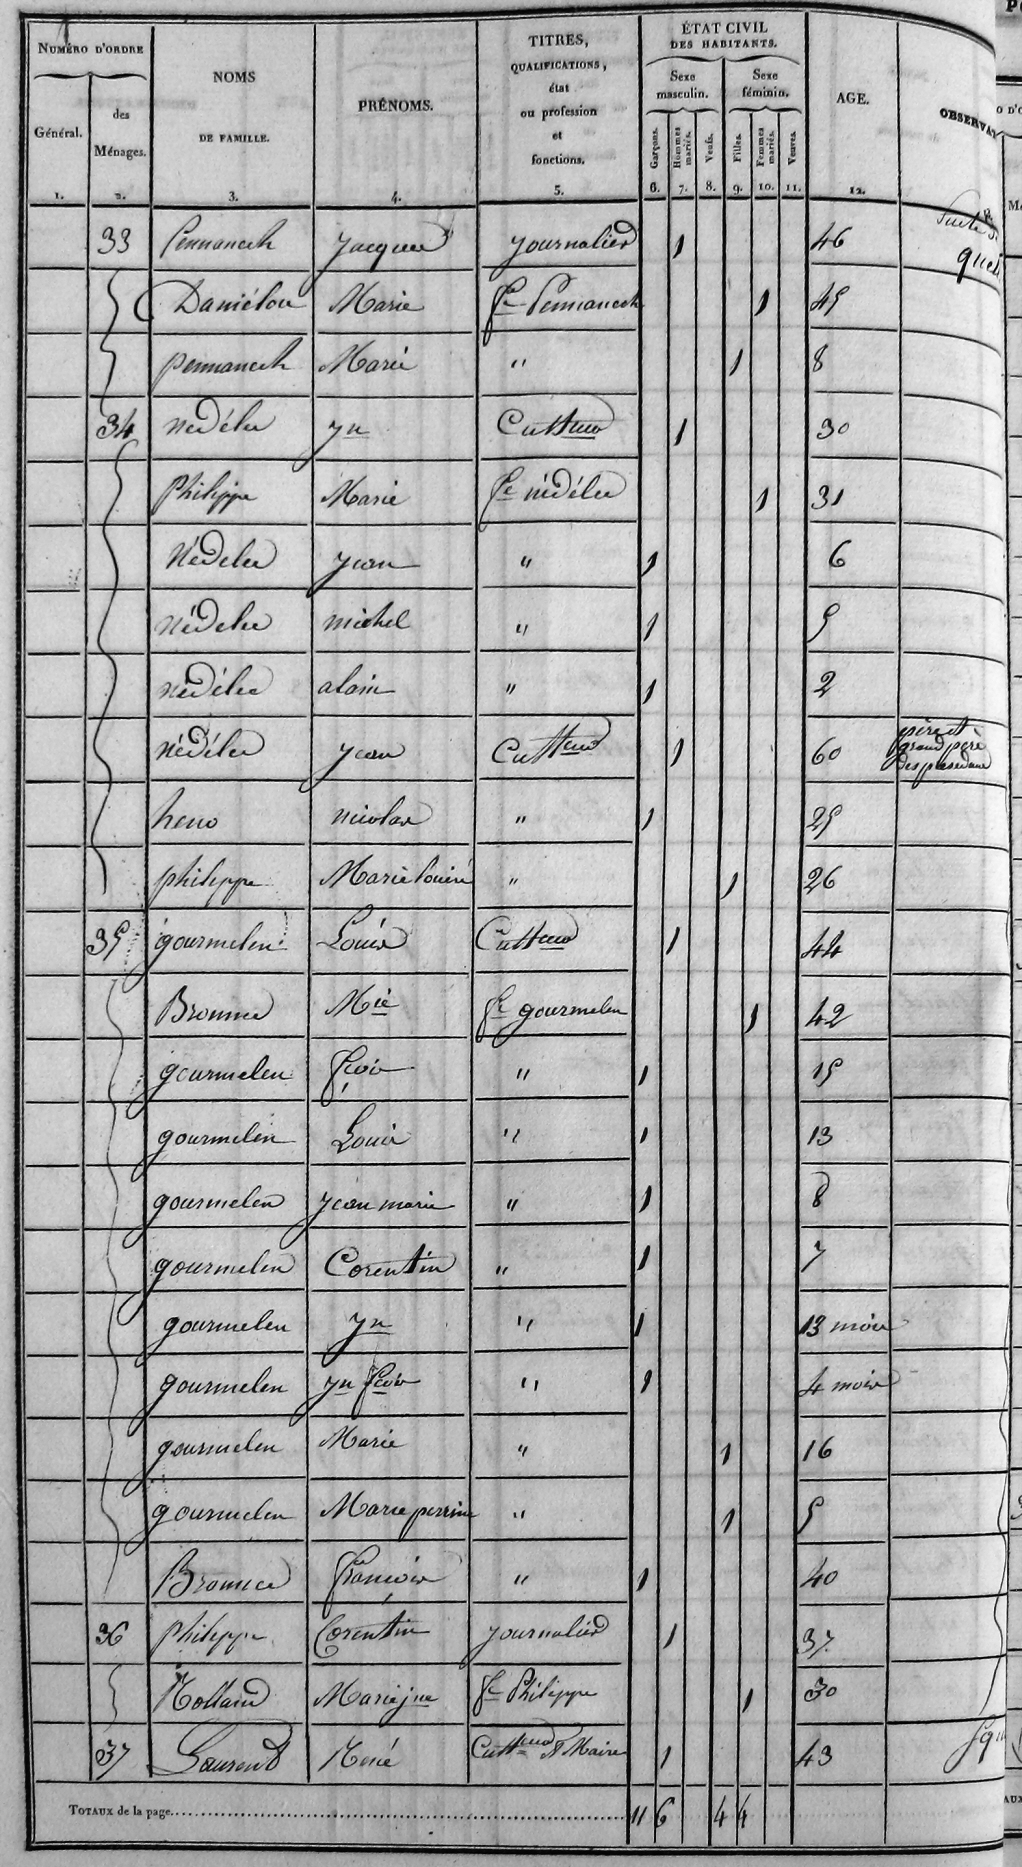 NUMÉRO D'ORDRE NOMS DE FAMILLE. PRÉNOMS. TITRES, QUALIFICATIONS, état ou profession et fonctions. ÉTAT CIVIL DES HABITANTS. AGE. OBSERVAT
Général. des Ménages. Sexe masculin. Sexe féminin.
Garçons. Hommes mariés. Veufs. Filles. Femmes mariés. Veuves.
1. 2. 3. 4. 5. 6. 7. 8. 9. 10. 11. 12.
33 Pennanech Jacques journalier 1 46
Daniélou Marie fe Pennanech 1 45
pennanech Marie " 1 8
34 nédélec jn Culteur 1 30
Philippe Marie fe nédélec 1 31
Nédelec jean " 1 6
nédelec michel " 1 5
nédélec alain " 1 2
nédélec jean Culteur 1 60 père et grand père
heno nicolas " 1 25
philippe Marie louise " 1 26
35 gourmelen Louis Culteur 1 44
Bronnec Mie fe gourmelen 1 42
gourmelen fçois " 1 15
gourmelen Louis " 1 13
gourmelen jean marie " 1 8
gourmelen Corentin " 1 7
gourmelen jn " 1 13 mois
gourmelen jn fçois " 1 4 mois
gourmelen Marie " 1 16
gourmelen Marie perrine " 1 5
Bronnec françois " 1 40
36 philippe Corentin journalier 1 37
Rolland Marie jne fe Philippe 1 30
37 Laurent René Culteur & Maire 1 43
TOTAUX de la page 11 6 4 4